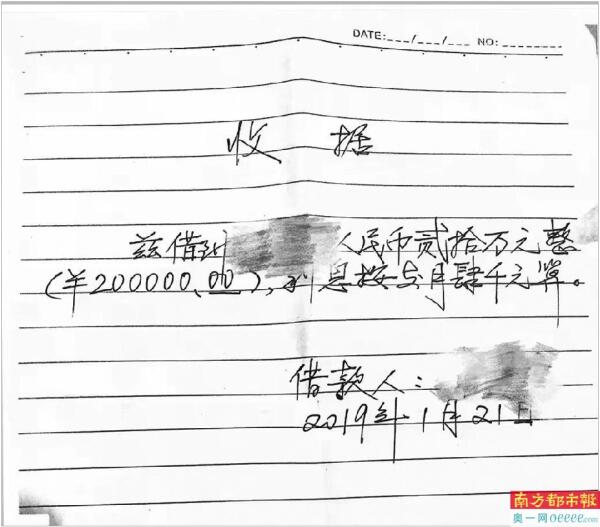 DATE:___/___/___ NO:________
收 据
兹借到 人民币贰拾万元整
(￥200000.00),利息按每月肆千元算。
借款人:
2019年1月21日
南方都市报
奥一网oeeee.com